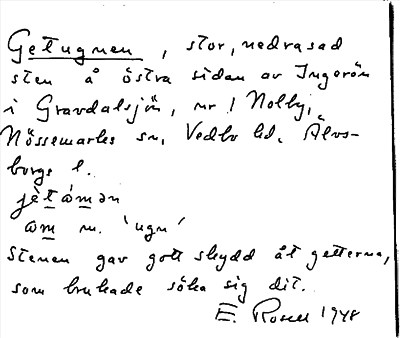 Getugnen, stor, nedrasad
sten å östra sidan av Ingerön
i Gravdalsjön, nr 1 Nolby,
Nössemarks sn, Vedbo hd, Älvs-
borgs l.
jètáman
am m. 'ugn'
Stenen gav gott skydd åt getterna,
som brukade söka sig dit.
E. Rosell 1948